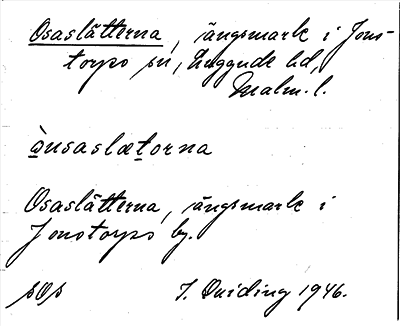 Osaslätterna, ängsmark i Jons-
torps sn, Luggude hd,
Malm. l.
ànsaslætorna
Osaslätterna, ängsmark i
Jonstorps by.
sOs J. Quiding 1946.